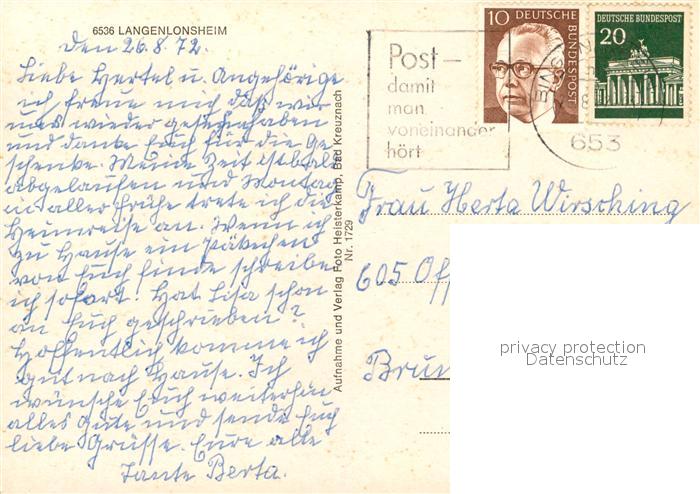 6536 LANGENLONSHEIM
den 26.8.72.
Liebe Hertel u. Angehörige
ich freue mich daß wir
uns wieder gesehn haben
und danke Euch für die Ge
schenke. Meine Zeit ist bald
abgelaufen und Montag
in aller frühe trete ich die
Heimreise an. Wenn ich
zu Hause ein Päkchen
von Euch finde schreibe
ich sofort. Hat Lisa schon
an Euch geschrieben?
Hoffentlich komme ich
gut nach Hause. Ich
wünsche Euch weiterhin
alles Gute und sende Euch
liebe Grüsse. Eure alte
Tante Berta.
Aufnahme und Verlag Foto Heisterkamp, Bad Kreuznach
Nr. 1729
Post –
damit
man
voneinander
hört
10 DEUTSCHE BUNDESPOST
DEUTSCHE BUNDESPOST
20
653
Frau Herta Wirsching
605 Of
Brun
privacy protection
Datenschutz